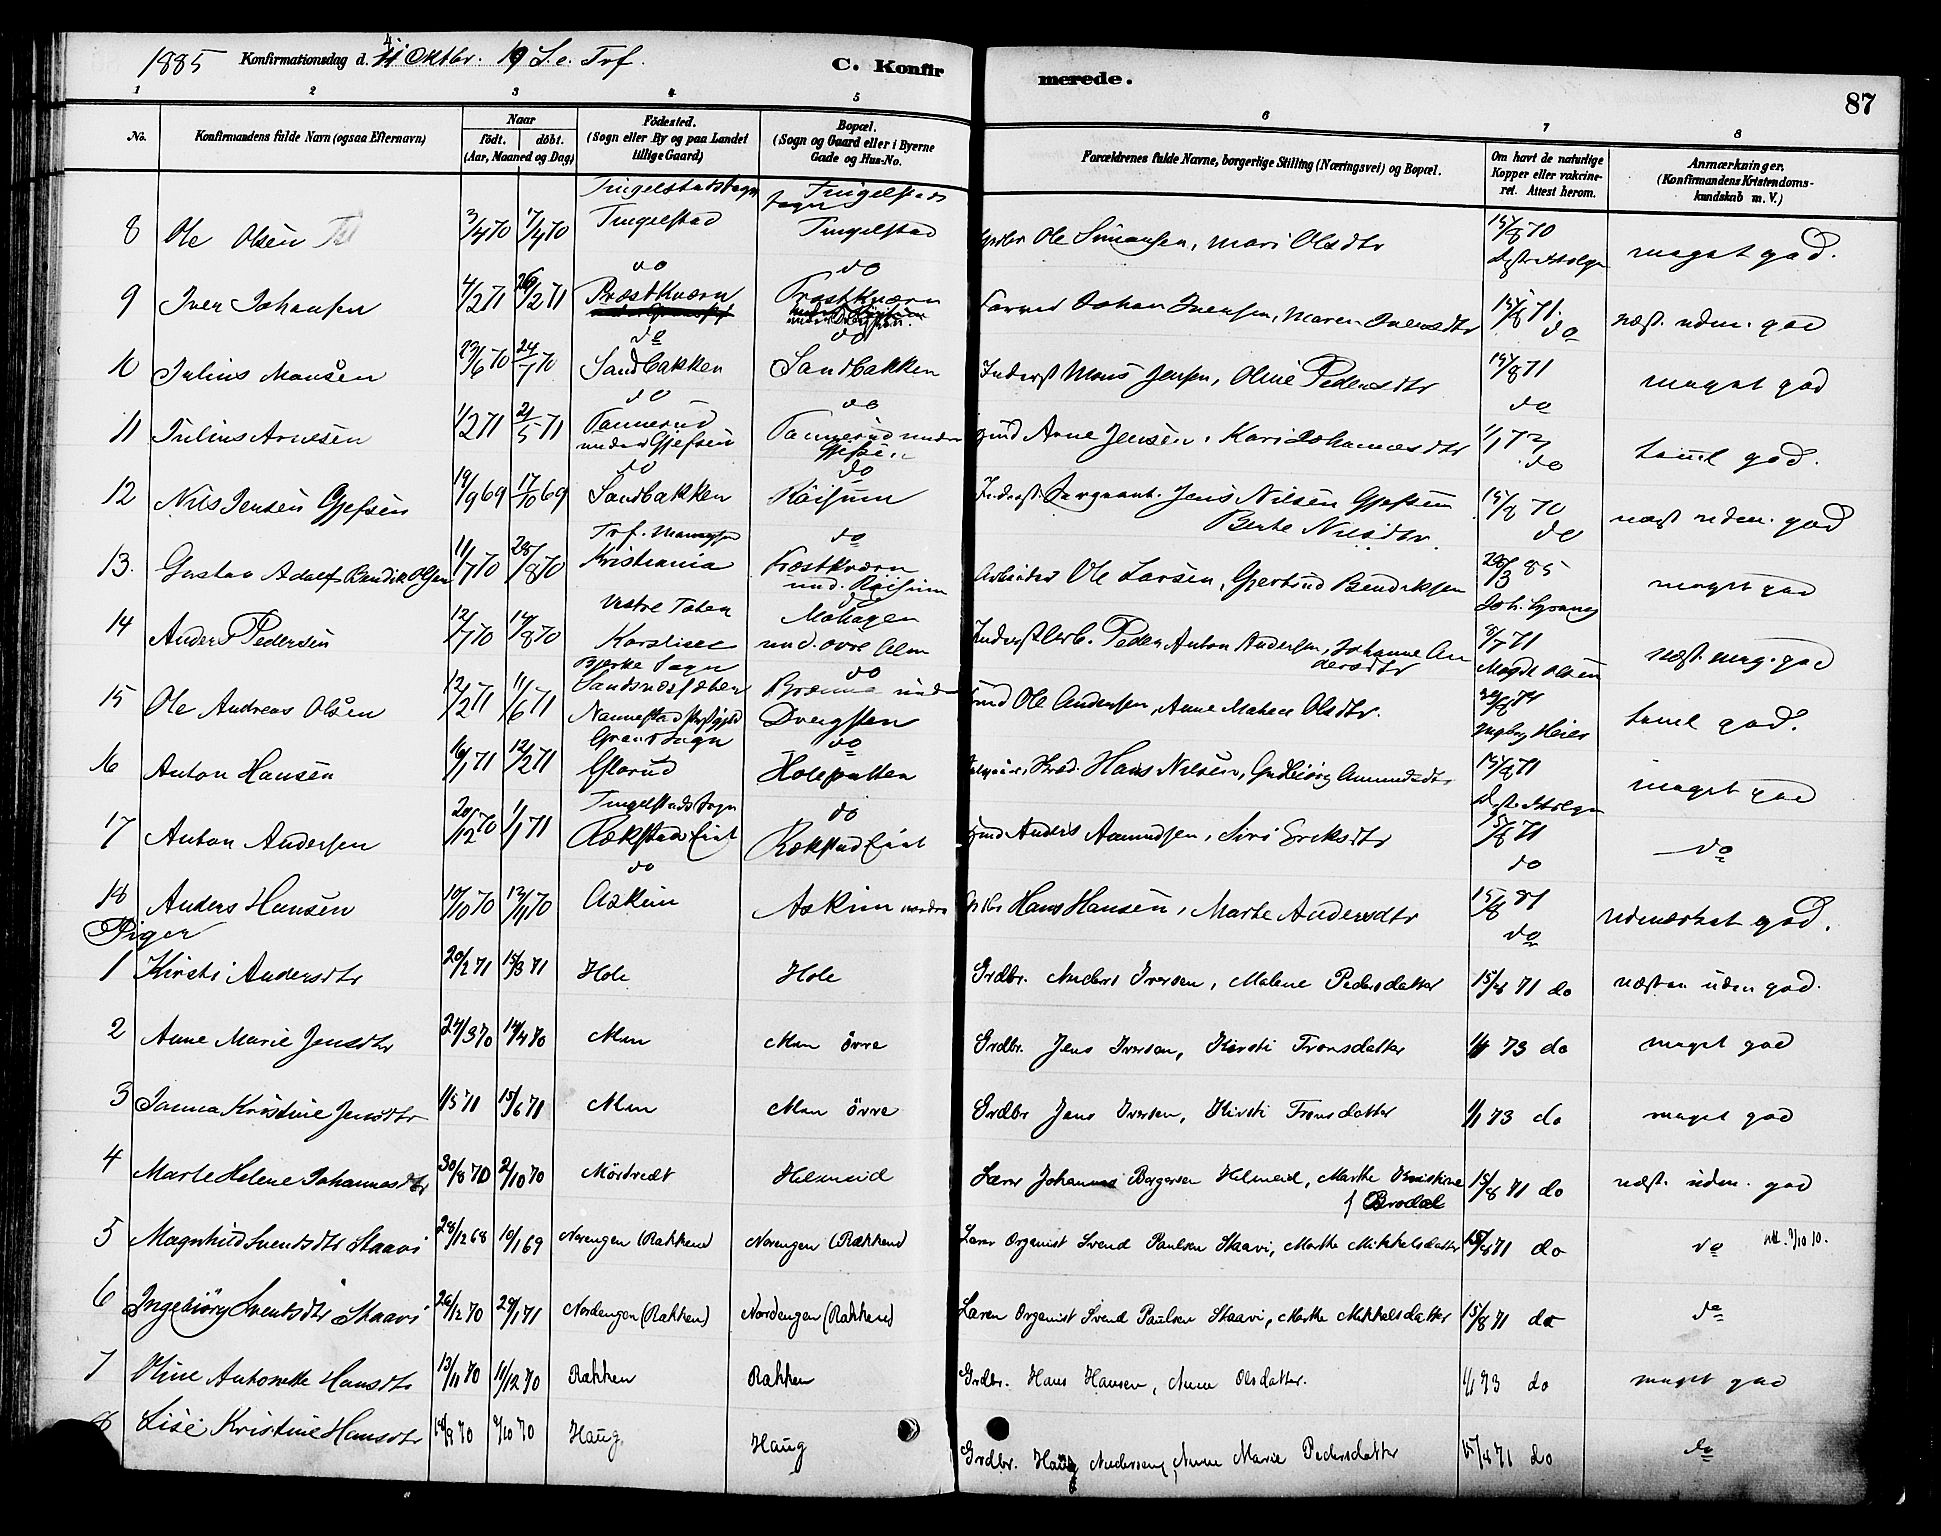 1885 Konfirmationsdag d. 4 Oktbr. 19 S. e. Trf.
C. Konfirmerede.
87
1 2 3 4 5 6 7 8
No. Konfirmandens fulde Navn (ogsaa Efternavn) Naar födt. döbt. (Aar, Maaned og Dag) Födested. (Sogn eller By og paa Landet tillige Gaard) Bopæl. (Sogn og Gaard eller i Byerne Gade og Hus-No. Forældrenes fulde Navne, borgerlige Stilling (Næringsvei) og Bopæl. Om havt de naturlige Kopper eller vakcineret. Attest herom. Anmærkninger. (Konfirmandens Kristendomskundskab m. V.)
Tingelstads Sogn Tingelstads Sogn
8 Ole Olsen 3/4 70 17/4 70 Tingelstad Tingelstad Grdbr Ole Simensen, Mari Olsdtr 15/8 70 meget god.
do do
9 Iver Johansen 4/2 71 26/2 71 Præstkværn Præstkværn Johan Iversen, Maren Iversdtr 15/8 71 do næst. uden. god
do do
10 Julius Monsen 23/6 70 24/7 70 Sandbakken Sandbakken Inderst Mons Jensen, Oline Pedersdtr 19/8 71 do meget god
do do
11 Julius Arnesen 1/2 71 21/5 71 Tannerud under Gjefsen Tannerud under Gjefsen Arne Jensen, Kari Johannesdtr 1/1 73 do temml god.
do do
12 Nils Jensen Gjefsen 19/9 69 17/10 69 Sandbakken Röisum Inderst. Sergeant. Jens Nilsen Gjefsen Berte Nilsdtr. 15/8 70 do næst uden. god
Trf. Menighed do
13. Gustav Adolf Bendik Olsen 11/7 70 28/8 70 Kristiania Præstkværn und. Röisum Arbeider Ole Larsen, Gjertrud Bendiksen 20/3 85 meget god
Vestre Toten do
14 Anders Pedersen 12/7 70 14/8 70 Mohagen und. övre Alm Peder Anton Andersen, Johanne Andersdtr 8/7 71 næst. meg. god
Bjerke Sogn do
15 Ole Andreas Olsen 12/2 71 11/6 71 Nannestad under Dvergsten Ole Andersen, Anne Malene Olsdtr. teml god.
Grans Sogn do
16 Anton Hansen 16/1 71 12/2 71 Glorud Holeputten Hans Nilsen, Gudbjörg Amundsdtr 15/8 71 meget god
Tingelstads Sogn do
17 Anton Andersen 20/12 70 1/1 71 Rækstadseiet Rækstadeiet Anders Aamundsen, Siri Eriksdtr 15/8 71 do do
do
18 Anders Hansen 10/10 70 13/11 70 Askim Askim nordre Grdbr Hans Hansen, Marte Andersdtr 15/8 81 do udmærket god.
Piger
1 Kirsti Andersdtr 20/2 71 15/3 71 Hole Hole Grdbr. Anders Iversen, Malene Pedersdatter 15/8 71 do næsten uden god.
2 Anne Marie Jensdtr 24/3 70 14/4 70 Alm Alm övre Grdbr. Jens Iversen, Kirsti Tronsdatter 1/1 73 do meget god
3 Janna Kristine Jensdtr 1/5 71 15/6 71 Alm Alm övre Grdbr Jens Iversen, Kirsti Tronsdatter 1/1 73 do meget god
4 Marte Helene Johannesdtr 30/8 70 2/10 70 Mörtvedt Helmeid Lærer Johannes Borgersen Helmeid, Marthe Kristine f Brodal 15/8 71 do næst. uden. god
5 Magnhild Svendsdtr Staavi 28/12 68 10/1 69 Norengen (Rækken) Norengen (Rækken) Lærer Organist Svend Paulsen Staavi, Marthe Mikkelsdatter 15/8 71 do do att. 7/10 10.
6 Ingebjörg Svendsdtr Staavi 26/12 70 29/1 71 Nordengen (Rakken) Nordengen (Rakken) Læren Organist Svend Paulsen Staavi, Marthe Mikkelsdatter 15/8 71 do do
7 Oline Antonette Hansdtr 13/11 70 11/12 70 Rakken Rakken Grdbr. Hans Hansen, Anne Olsdatter. 1/1 73 do meget god
8 Lise Kristine Hansdtr 18/9 70 9/10 70 Haug Haug Grdbr. Hans Andersen, Anne Marie Pedersdatter 15/8 71 do do